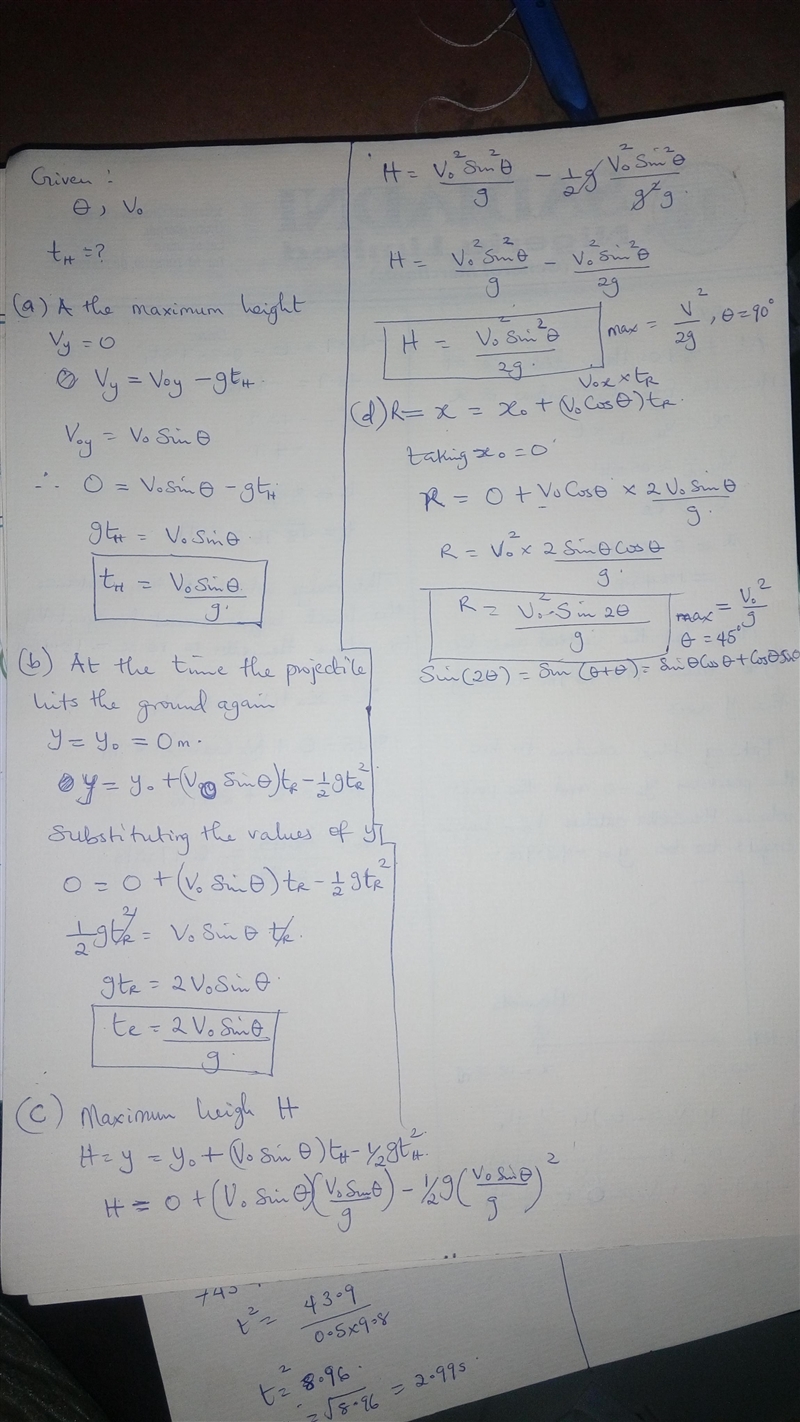 Given :
θ, V₀
t_H = ?
(a) A the maximum height
Vy = 0
Vy = Voy - gt_H.
Voy = V₀ Sin θ
∴ 0 = V₀ sin θ - gt_H
gt_H = V₀ sin θ.
t_H = V₀ sin θ / g.
(b) At the time the projectile
hits the ground again
y = y₀ = 0m.
y = y₀ + (V₀ Sin θ)t_R - 1/2 gt_R²
Substituting the values of y
0 = 0 + (V₀ Sin θ) t_R - 1/2 gt_R²
1/2 gt_R² = V₀ Sin θ t_R.
gt_R = 2 V₀ Sin θ.
t_R = 2 V₀ Sin θ / g.
(C) Maximum heigh H
H = y = y₀ + (V₀ sin θ) t_H - 1/2 gt_H².
H = 0 + (V₀ sin θ)(V₀ sin θ / g) - 1/2 g (V₀ sin θ / g)²
H = V₀² Sin² θ / g - 1/2 g V₀² Sin² θ / g² g.
H = V₀² Sin² θ / g - V₀² Sin² θ / 2g
H = V₀² Sin² θ / 2g. max = V² / 2g, θ = 90°
Vox × t_R
(d) R = x = x₀ + (V₀ Cos θ) t_R.
taking x₀ = 0
R = 0 + V₀ Cos θ × 2 V₀ Sin θ / g.
R = V₀² × 2 Sin θ Cos θ / g.
R = V₀² Sin 2θ / g max = V₀² / g
θ = 45°
Sin (2θ) = Sin (θ+θ) = Sin θ Cos θ + Cos θ Sin θ
t² = 43.9 / 0.5×9.8
t² = 8.96.
= √8.96 = 2.99s.